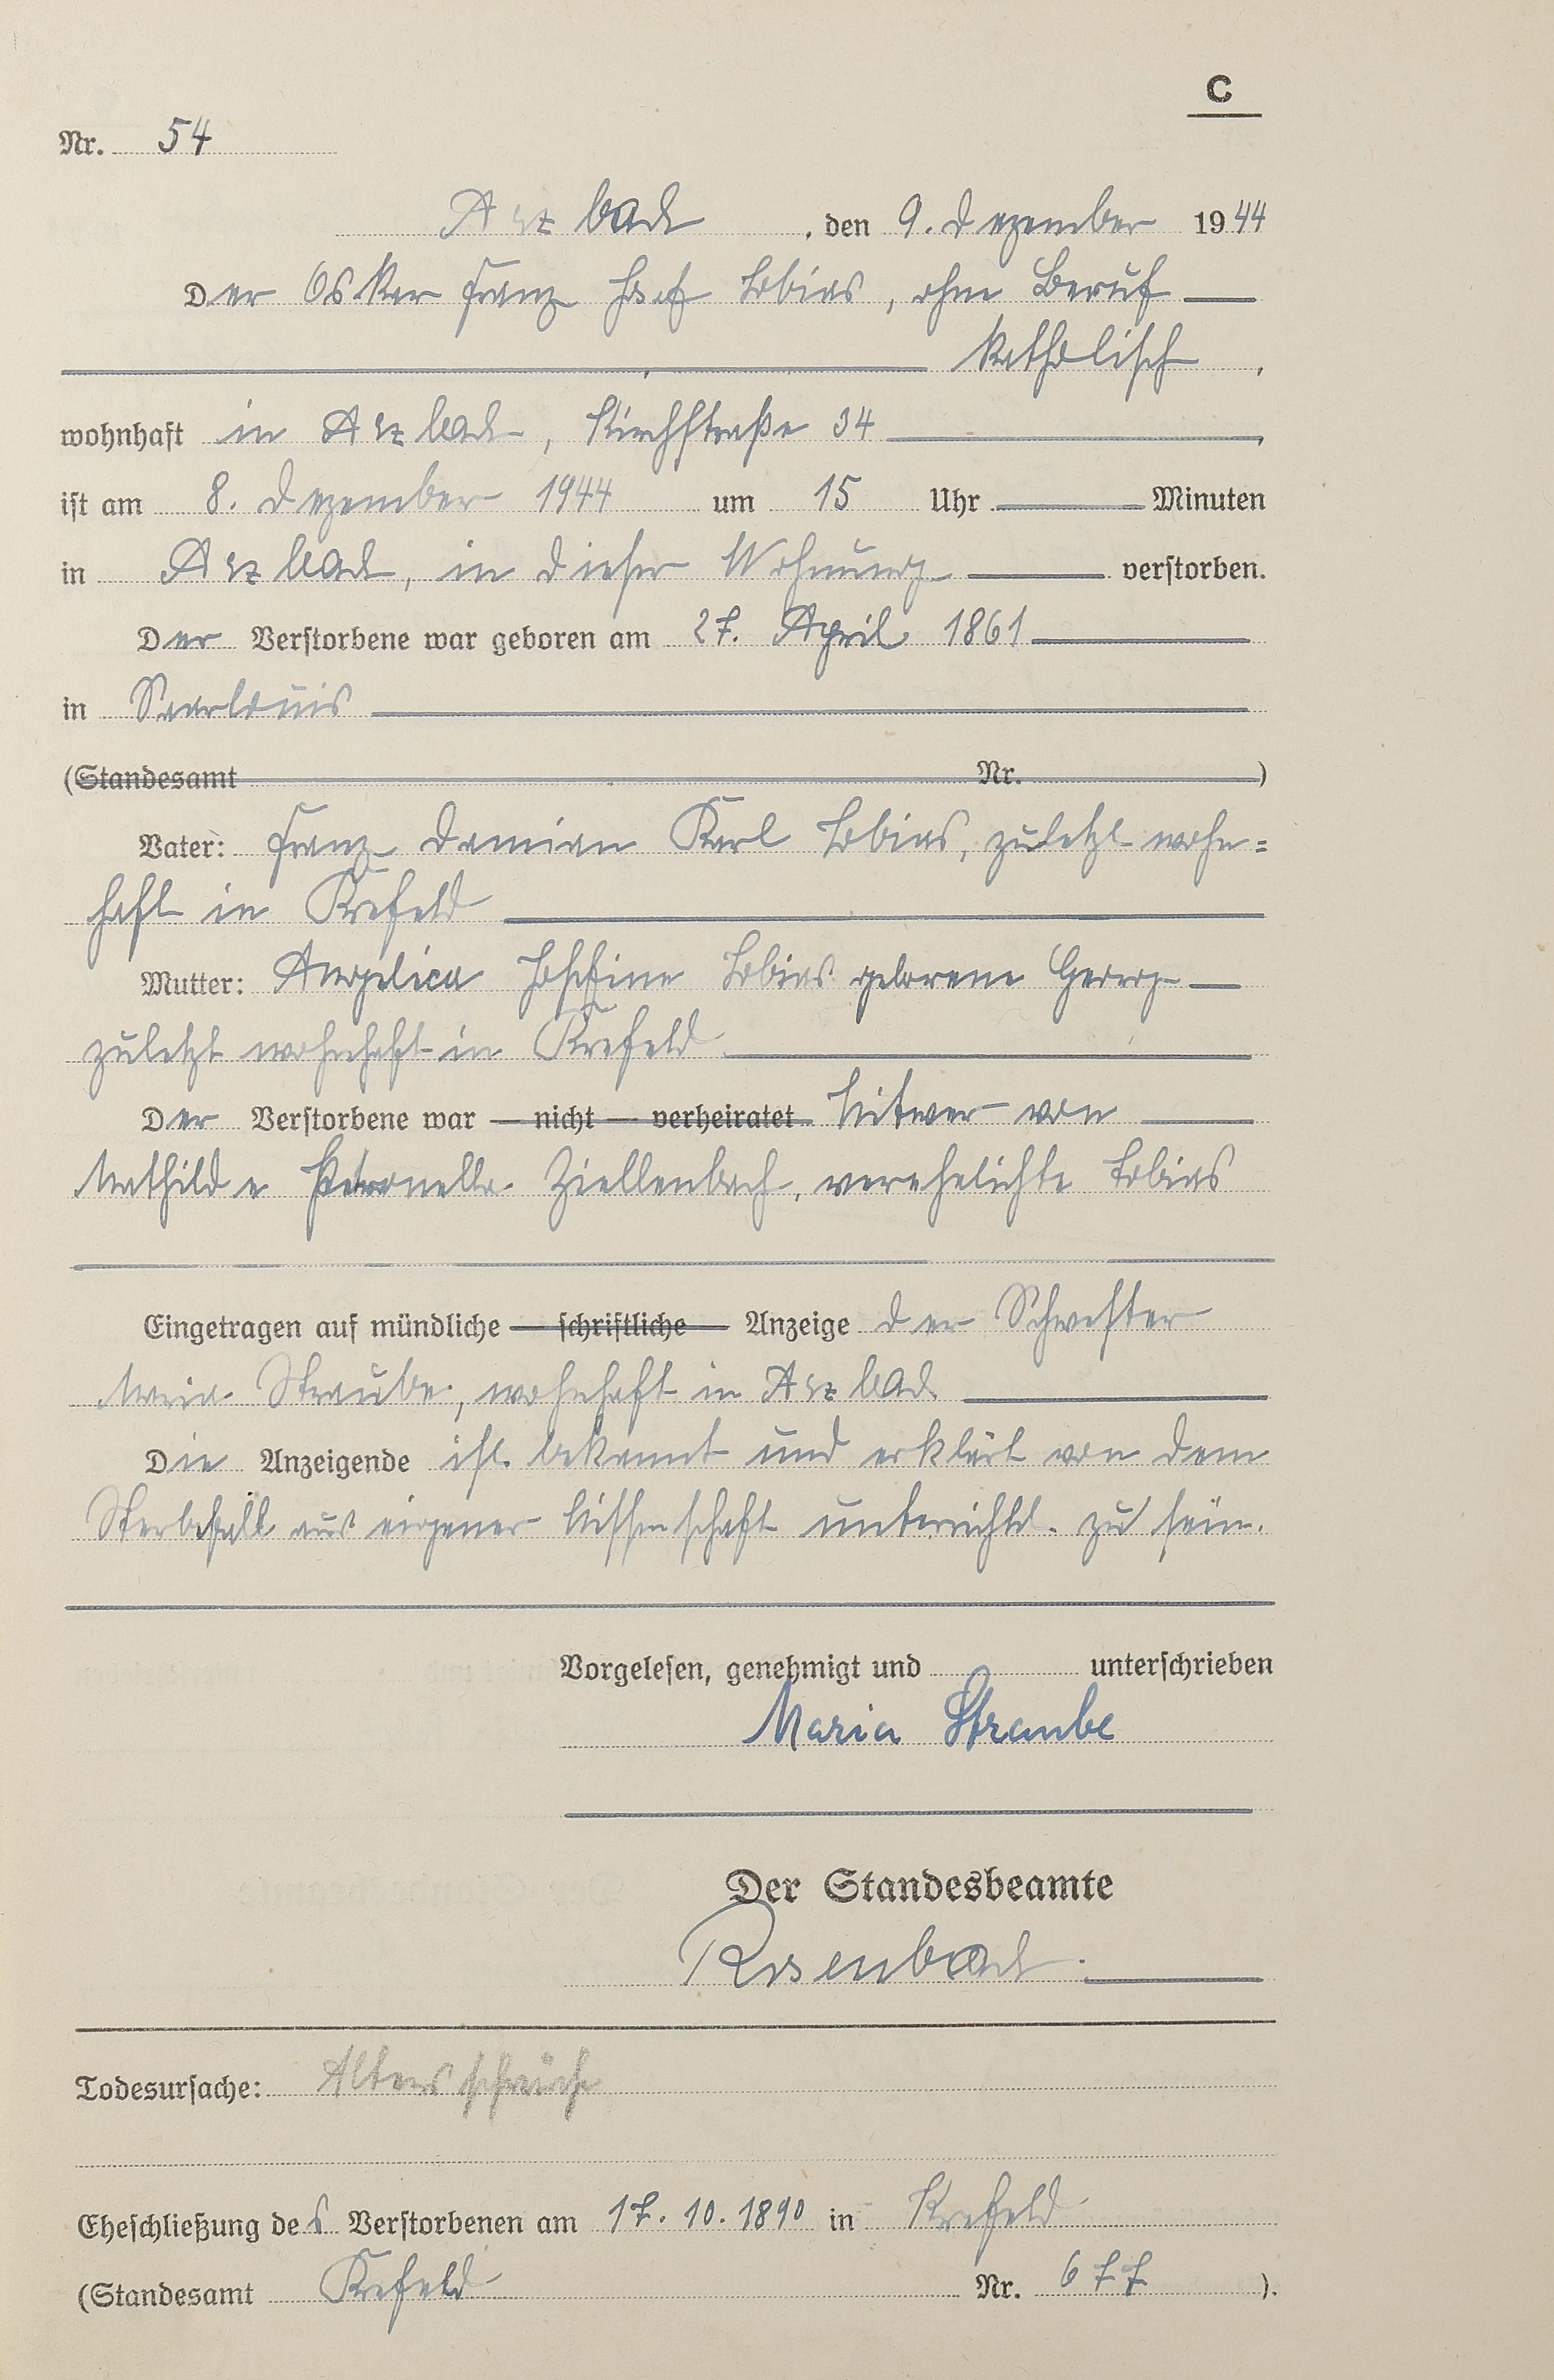 C
Nr. 54
Arzbach, den 9. Dezember 1944
Der Oskar Franz Josef Tobias, ohne Beruf
katholisch,
wohnhaft in Arzbach, Kirchstraße 34,
ist am 8. Dezember 1944 um 15 Uhr Minuten
in Arzbach, in dieser Wohnung verstorben.
Der Verstorbene war geboren am 27. April 1861
in Saarlouis
(Standesamt Nr. )
Vater: Franz Damian Karl Tobias, zuletzt wohn=
haft in Krefeld
Mutter: Angelica Josefine Tobias geborene
zuletzt wohnhaft in Krefeld
Der Verstorbene war — nicht — verheiratet Witwer von
Mathilde Petronella Ziellenbach, verehelichte Tobias
Eingetragen auf mündliche — schriftliche — Anzeige der Schwester
Maria Straube, wohnhaft in Arzbach
Die Anzeigende ist bekannt und erklärt von dem
Sterbefall aus eigener Wissenschaft unterrichtet zu sein.
Vorgelesen, genehmigt und unterschrieben
Maria Straube
Der Standesbeamte
Rosenbach
Todesursache: Altersschwäche
Eheschließung des Verstorbenen am 17.10.1890 in Krefeld
(Standesamt Krefeld Nr. 677 ).